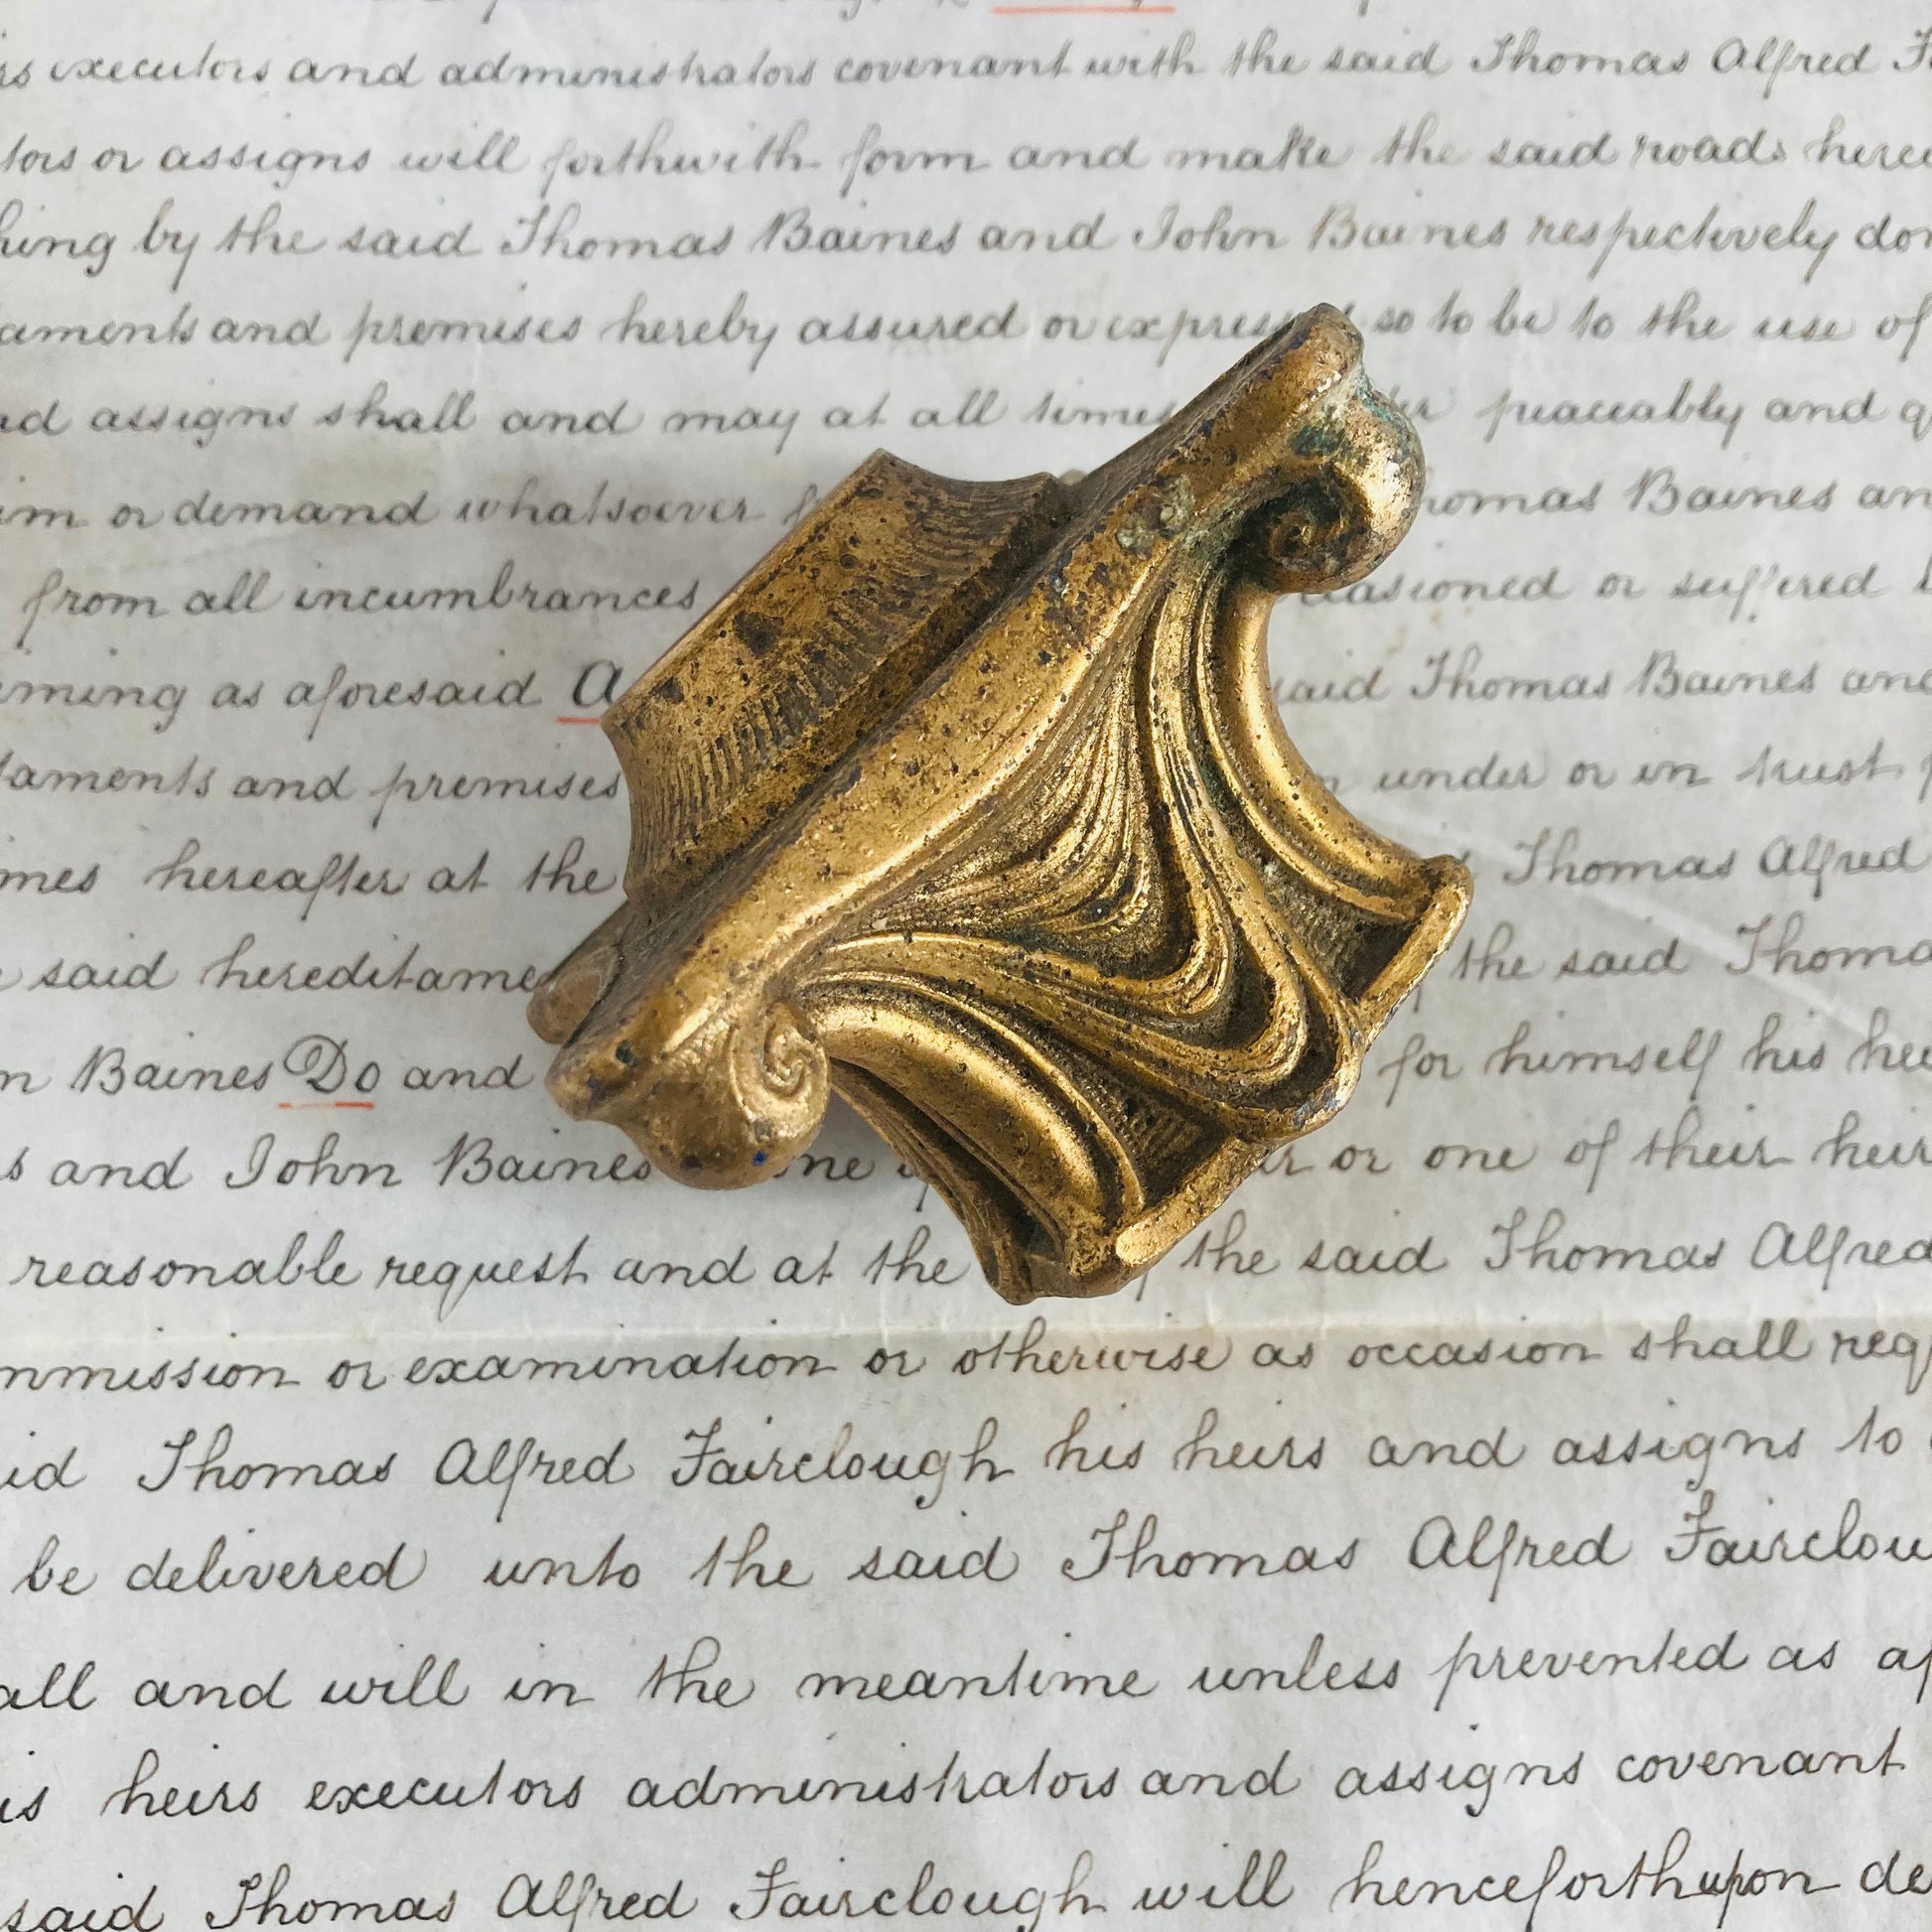 executors and administrators covenant with the said Thomas Alfred
or assigns will forthwith form and make the said roads
by the said Thomas Baines and John Baines respectively
and premises hereby assured or so to be to the use of
assigns shall and may at all times peaceably and
or demand whatsoever Baines
from all incumbrances or suffered
as aforesaid said Thomas Baines and
and premises under or in trust
hereafter at the Thomas Alfred
said the said
Baines Do and for himself his
and John Baines or one of their
reasonable request and at the the said Thomas Alfred
or examination or otherwise as occasion shall
Thomas Alfred Fairclough his heirs and assigns to
be delivered unto the said Thomas Alfred
and will in the meantime unless prevented as
heirs executors administrators and assigns covenant
said Thomas Alfred Fairclough will henceforth upon